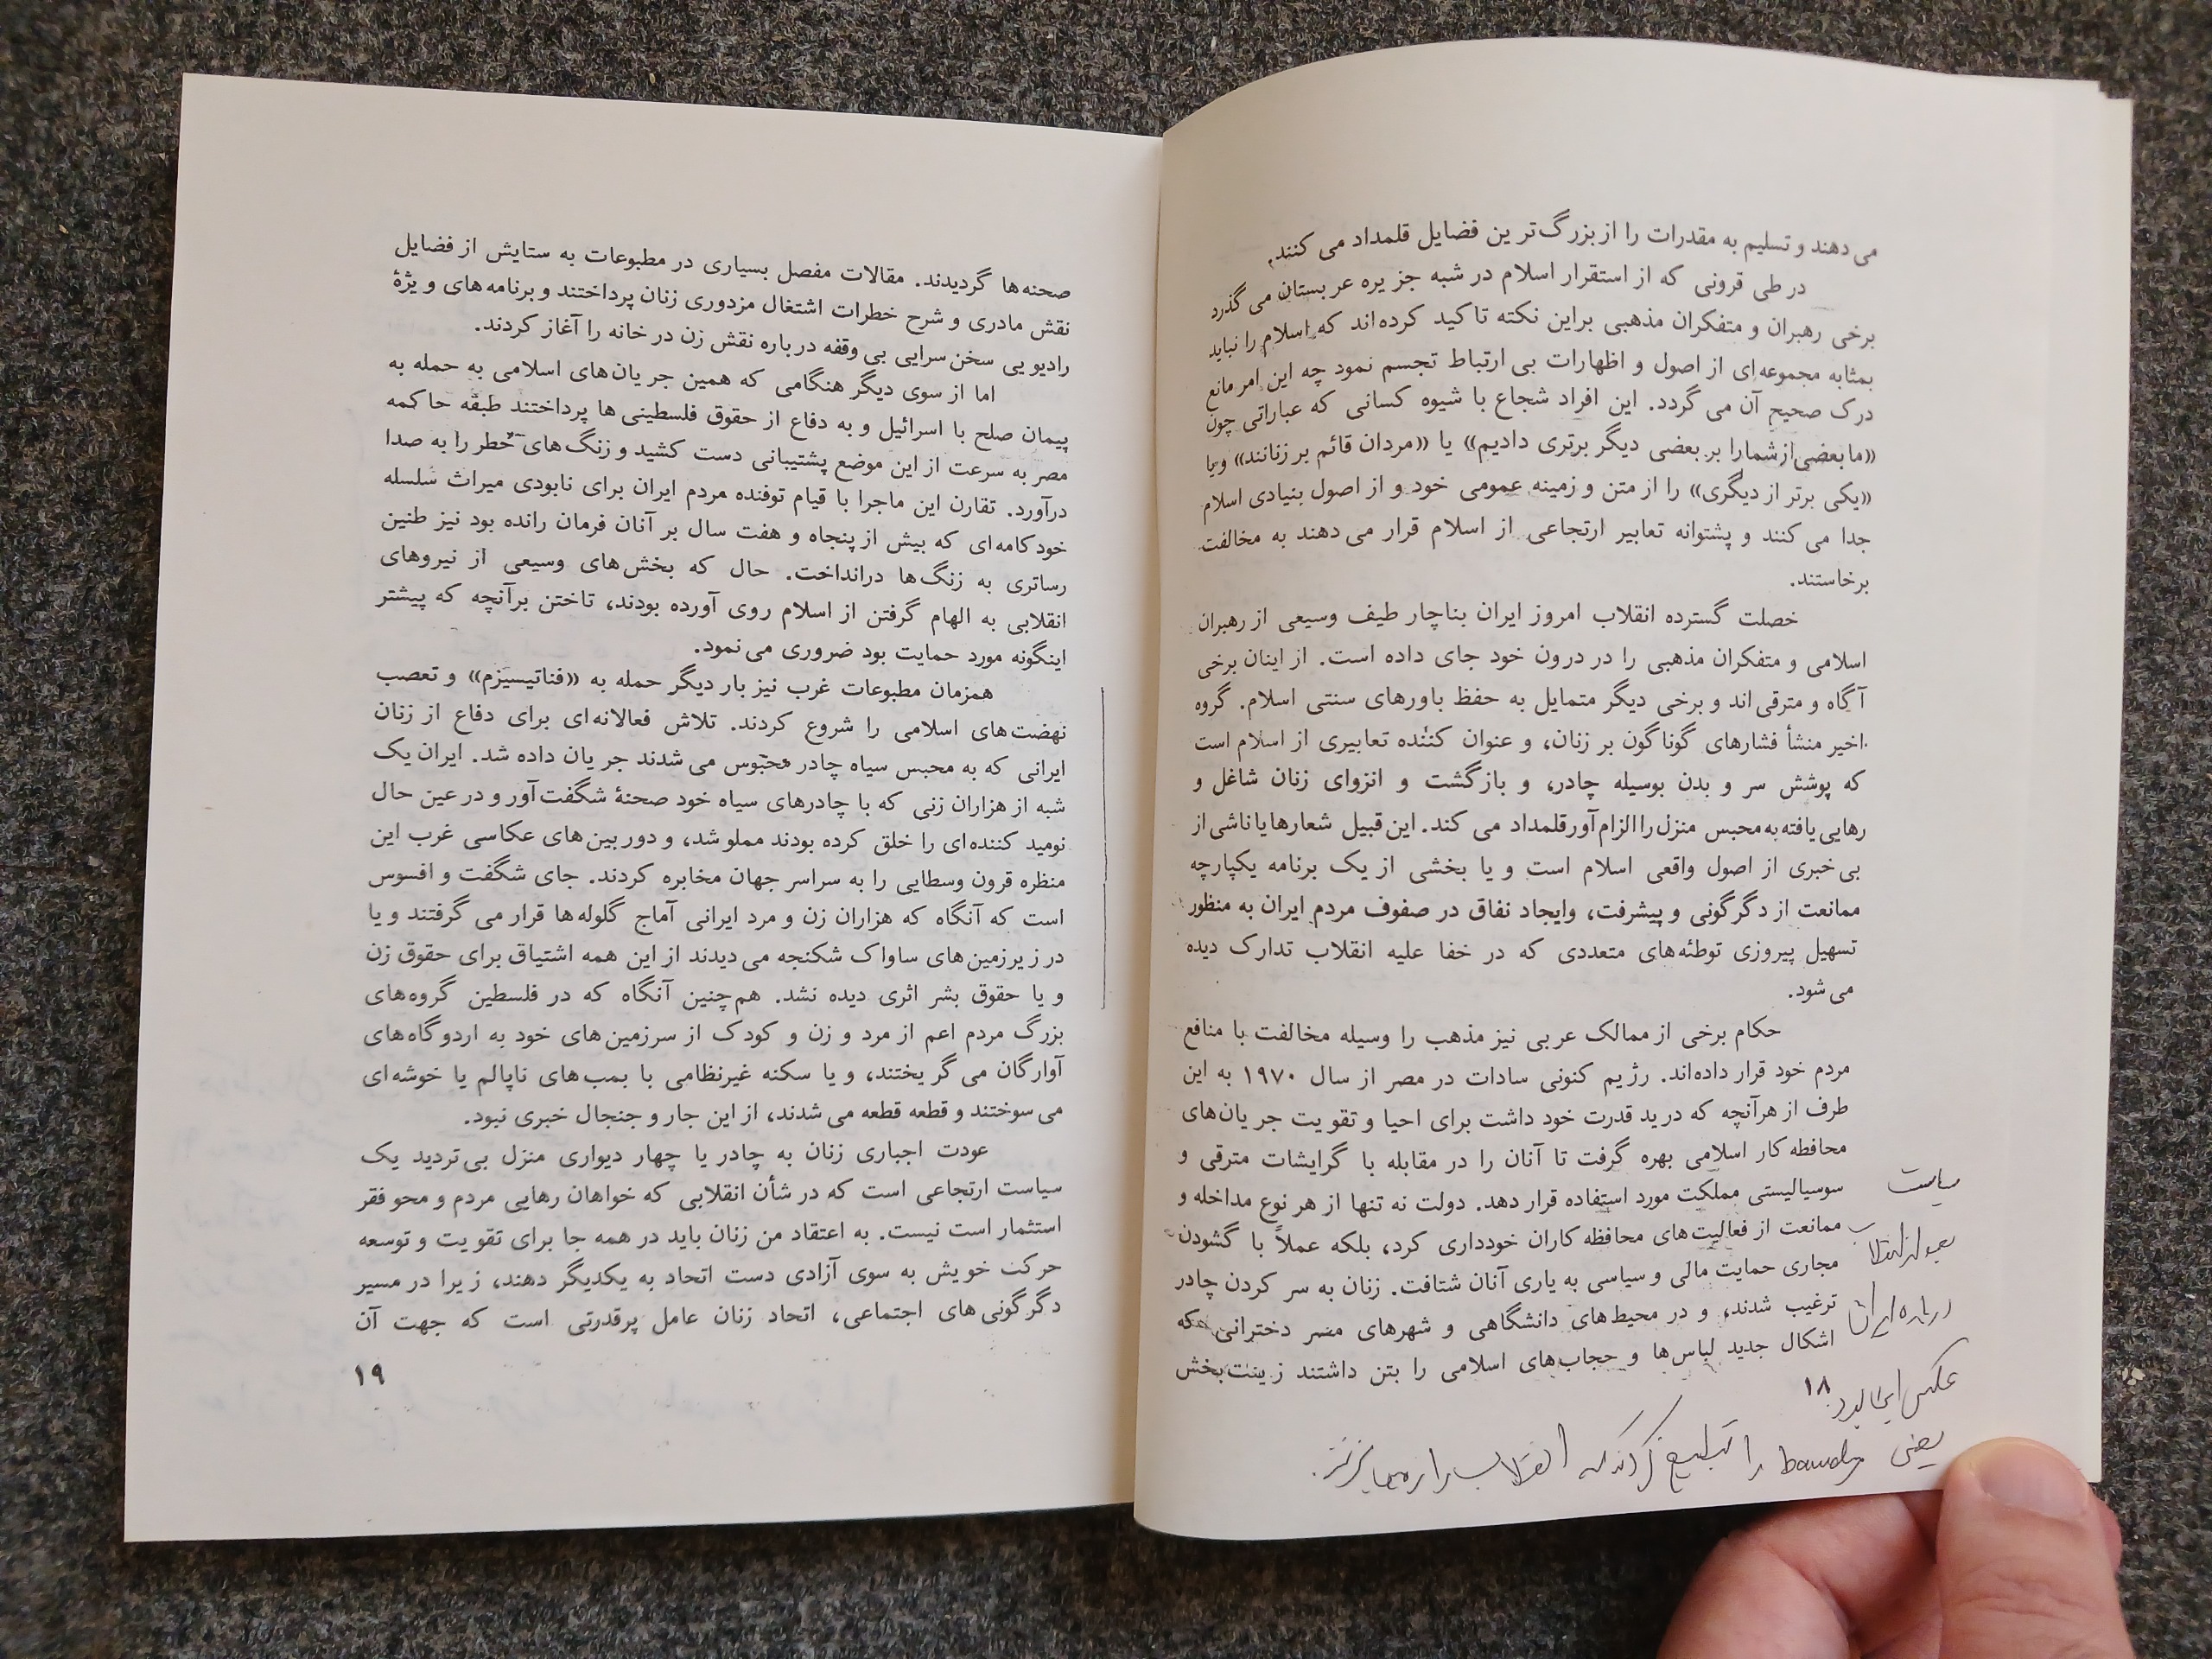 می دهند و تسلیم به مقدرات را از بزرگ‌ترین فضایل قلمداد می کنند.
در طی قرونی که از استقرار اسلام در شبه جزیره عربستان می گذرد
برخی رهبران و متفکران مذهبی براین نکته تاکید کرده‌اند که اسلام را نباید
بمثابه مجموعه‌ای از اصول و اظهارات بی ارتباط تجسم نمود چه این امر مانع
درک صحیح آن می گردد. این افراد شجاع با شیوه کسانی که عباراتی چون
«ما بعضی از شما را بر بعضی دیگر برتری دادیم» یا «مردان قائم بر زنانند» و یا
«یکی برتر از دیگری» را از متن و زمینه عمومی خود و از اصول بنیادی اسلام
جدا می کنند و پشتوانه تعابیر ارتجاعی از اسلام قرار می دهند به مخالفت
برخاستند.
خصلت گسترده انقلاب امروز ایران بناچار طیف وسیعی از رهبران
اسلامی و متفکران مذهبی را در درون خود جای داده است. از اینان برخی
آگاه و مترقی‌اند و برخی دیگر متمایل به حفظ باورهای سنتی اسلام. گروه
اخیر منشأ فشارهای گوناگون بر زنان، و عنوان کننده تعابیری از اسلام است
که پوشش سر و بدن بوسیله چادر، و بازگشت و انزوای زنان شاغل و
رهایی یافته به محبس منزل را الزام‌آور قلمداد می کند. این قبیل شعارها یا ناشی از
بی خبری از اصول واقعی اسلام است و یا بخشی از یک برنامه یکپارچه
ممانعت از دگرگونی و پیشرفت، وایجاد نفاق در صفوف مردم ایران به منظور
تسهیل پیروزی توطئه‌های متعددی که در خفا علیه انقلاب تدارک دیده
می شود.
حکام برخی از ممالک عربی نیز مذهب را وسیله مخالفت با منافع
مردم خود قرار داده‌اند. رژیم کنونی سادات در مصر از سال ۱۹۷۰ به این
طرف از هرآنچه که در ید قدرت خود داشت برای احیا و تقویت جریان‌های
محافظه کار اسلامی بهره گرفت تا آنان را در مقابله با گرایشات مترقی و
سوسیالیستی مملکت مورد استفاده قرار دهد. دولت نه تنها از هر نوع مداخله و
ممانعت از فعالیت‌های محافظه کاران خودداری کرد، بلکه عملاً با گشودن
مجاری حمایت مالی و سیاسی به یاری آنان شتافت. زنان به سر کردن چادر
ترغیب شدند، و در محیط‌های دانشگاهی و شهرهای مصر دخترانی که
اشکال جدید لباس‌ها و حجاب‌های اسلامی را بتن داشتند زینت‌بخش
۱۸
سیاست
بعد از انقلاب
درباره ایران
عکس
یعنی
را تبلیغ کردند که انقلاب را
صحنه‌ها گردیدند. مقالات مفصل بسیاری در مطبوعات به ستایش از فضایل
نقش مادری و شرح خطرات اشتغال مزدوری زنان پرداختند و برنامه‌های ویژهٔ
رادیویی سخن سرایی بی وقفه درباره نقش زن در خانه را آغاز کردند.
اما از سوی دیگر هنگامی که همین جریان‌های اسلامی به حمله به
پیمان صلح با اسرائیل و به دفاع از حقوق فلسطینی ها پرداختند طبقه حاکمه
مصر به سرعت از این موضع پشتیبانی دست کشید و زنگ‌های خطر را به صدا
درآورد. تقارن این ماجرا با قیام توفنده مردم ایران برای نابودی میراث سلسله
خودکامه‌ای که بیش از پنجاه و هفت سال بر آنان فرمان رانده بود نیز طنین
رساتری به زنگ‌ها درانداخت. حال که بخش‌های وسیعی از نیروهای
انقلابی به الهام گرفتن از اسلام روی آورده بودند، تاختن برآنچه که پیشتر
اینگونه مورد حمایت بود ضروری می نمود.
همزمان مطبوعات غرب نیز بار دیگر حمله به «فناتیسیزم» و تعصب
نهضت‌های اسلامی را شروع کردند. تلاش فعالانه‌ای برای دفاع از زنان
ایرانی که به محبس سیاه چادر محبوس می شدند جریان داده شد. ایران یک
شبه از هزاران زنی که با چادرهای سیاه خود صحنهٔ شگفت‌آور و در عین حال
نومید کننده‌ای را خلق کرده بودند مملو شد، و دوربین‌های عکاسی غرب این
منظره قرون وسطایی را به سراسر جهان مخابره کردند. جای شگفت و افسوس
است که آنگاه که هزاران زن و مرد ایرانی آماج گلوله‌ها قرار می گرفتند و یا
در زیرزمین‌های ساواک شکنجه می دیدند از این همه اشتیاق برای حقوق زن
و یا حقوق بشر اثری دیده نشد. هم‌چنین آنگاه که در فلسطین گروه‌های
بزرگ مردم اعم از مرد و زن و کودک از سرزمین‌های خود به اردوگاه‌های
آوارگان می گریختند، و یا سکنه غیرنظامی با بمب‌های ناپالم یا خوشه‌ای
می سوختند و قطعه قطعه می شدند، از این جار و جنجال خبری نبود.
عودت اجباری زنان به چادر یا چهار دیواری منزل بی‌تردید یک
سیاست ارتجاعی است که در شأن انقلابی که خواهان رهایی مردم و محو فقر
استثمار است نیست. به اعتقاد من زنان باید در همه جا برای تقویت و توسعه
حرکت خویش به سوی آزادی دست اتحاد به یکدیگر دهند، زیرا در مسیر
دگرگونی‌های اجتماعی، اتحاد زنان عامل پرقدرتی است که جهت آن
۱۹